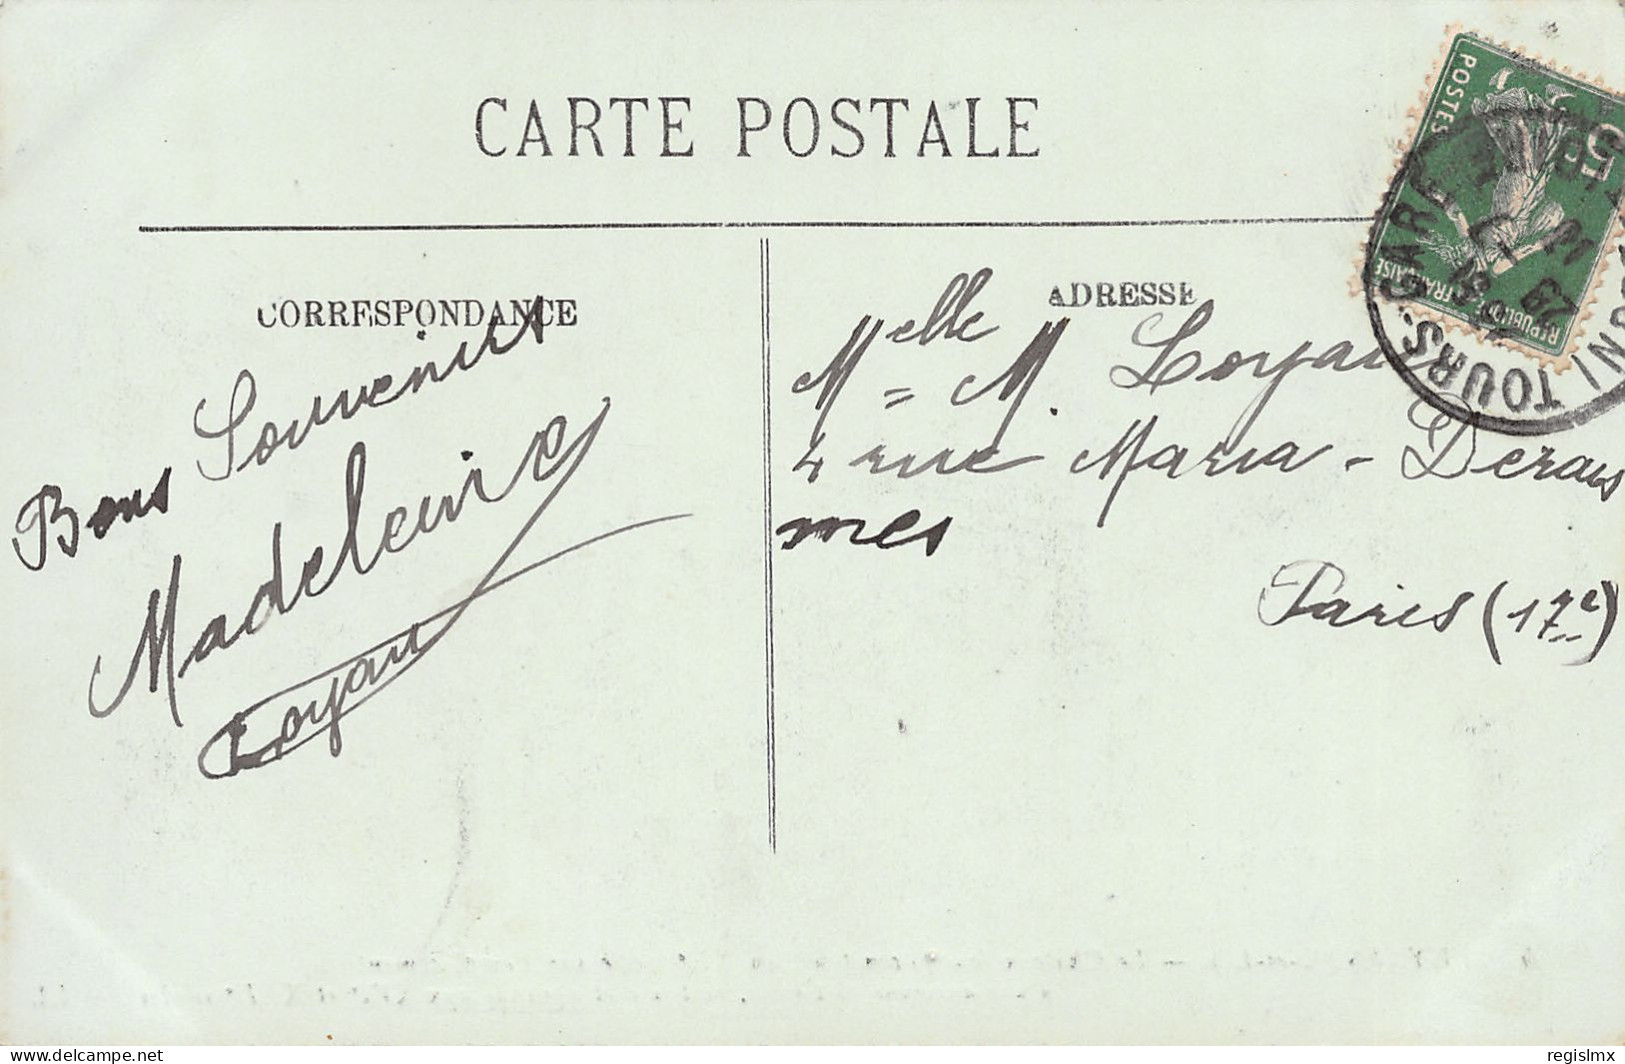 CARTE POSTALE
CORRESPONDANCE
Bons Souvenirs
Madeleine
Loyau
ADRESSE
Melle M. Loyau
4 rue Maria-Derais
mes
Paris (17e)
POSTES
5c
REPUBLIQUE FRANÇAISE
TOURS. GARE
29
delcampe.net
regislmx